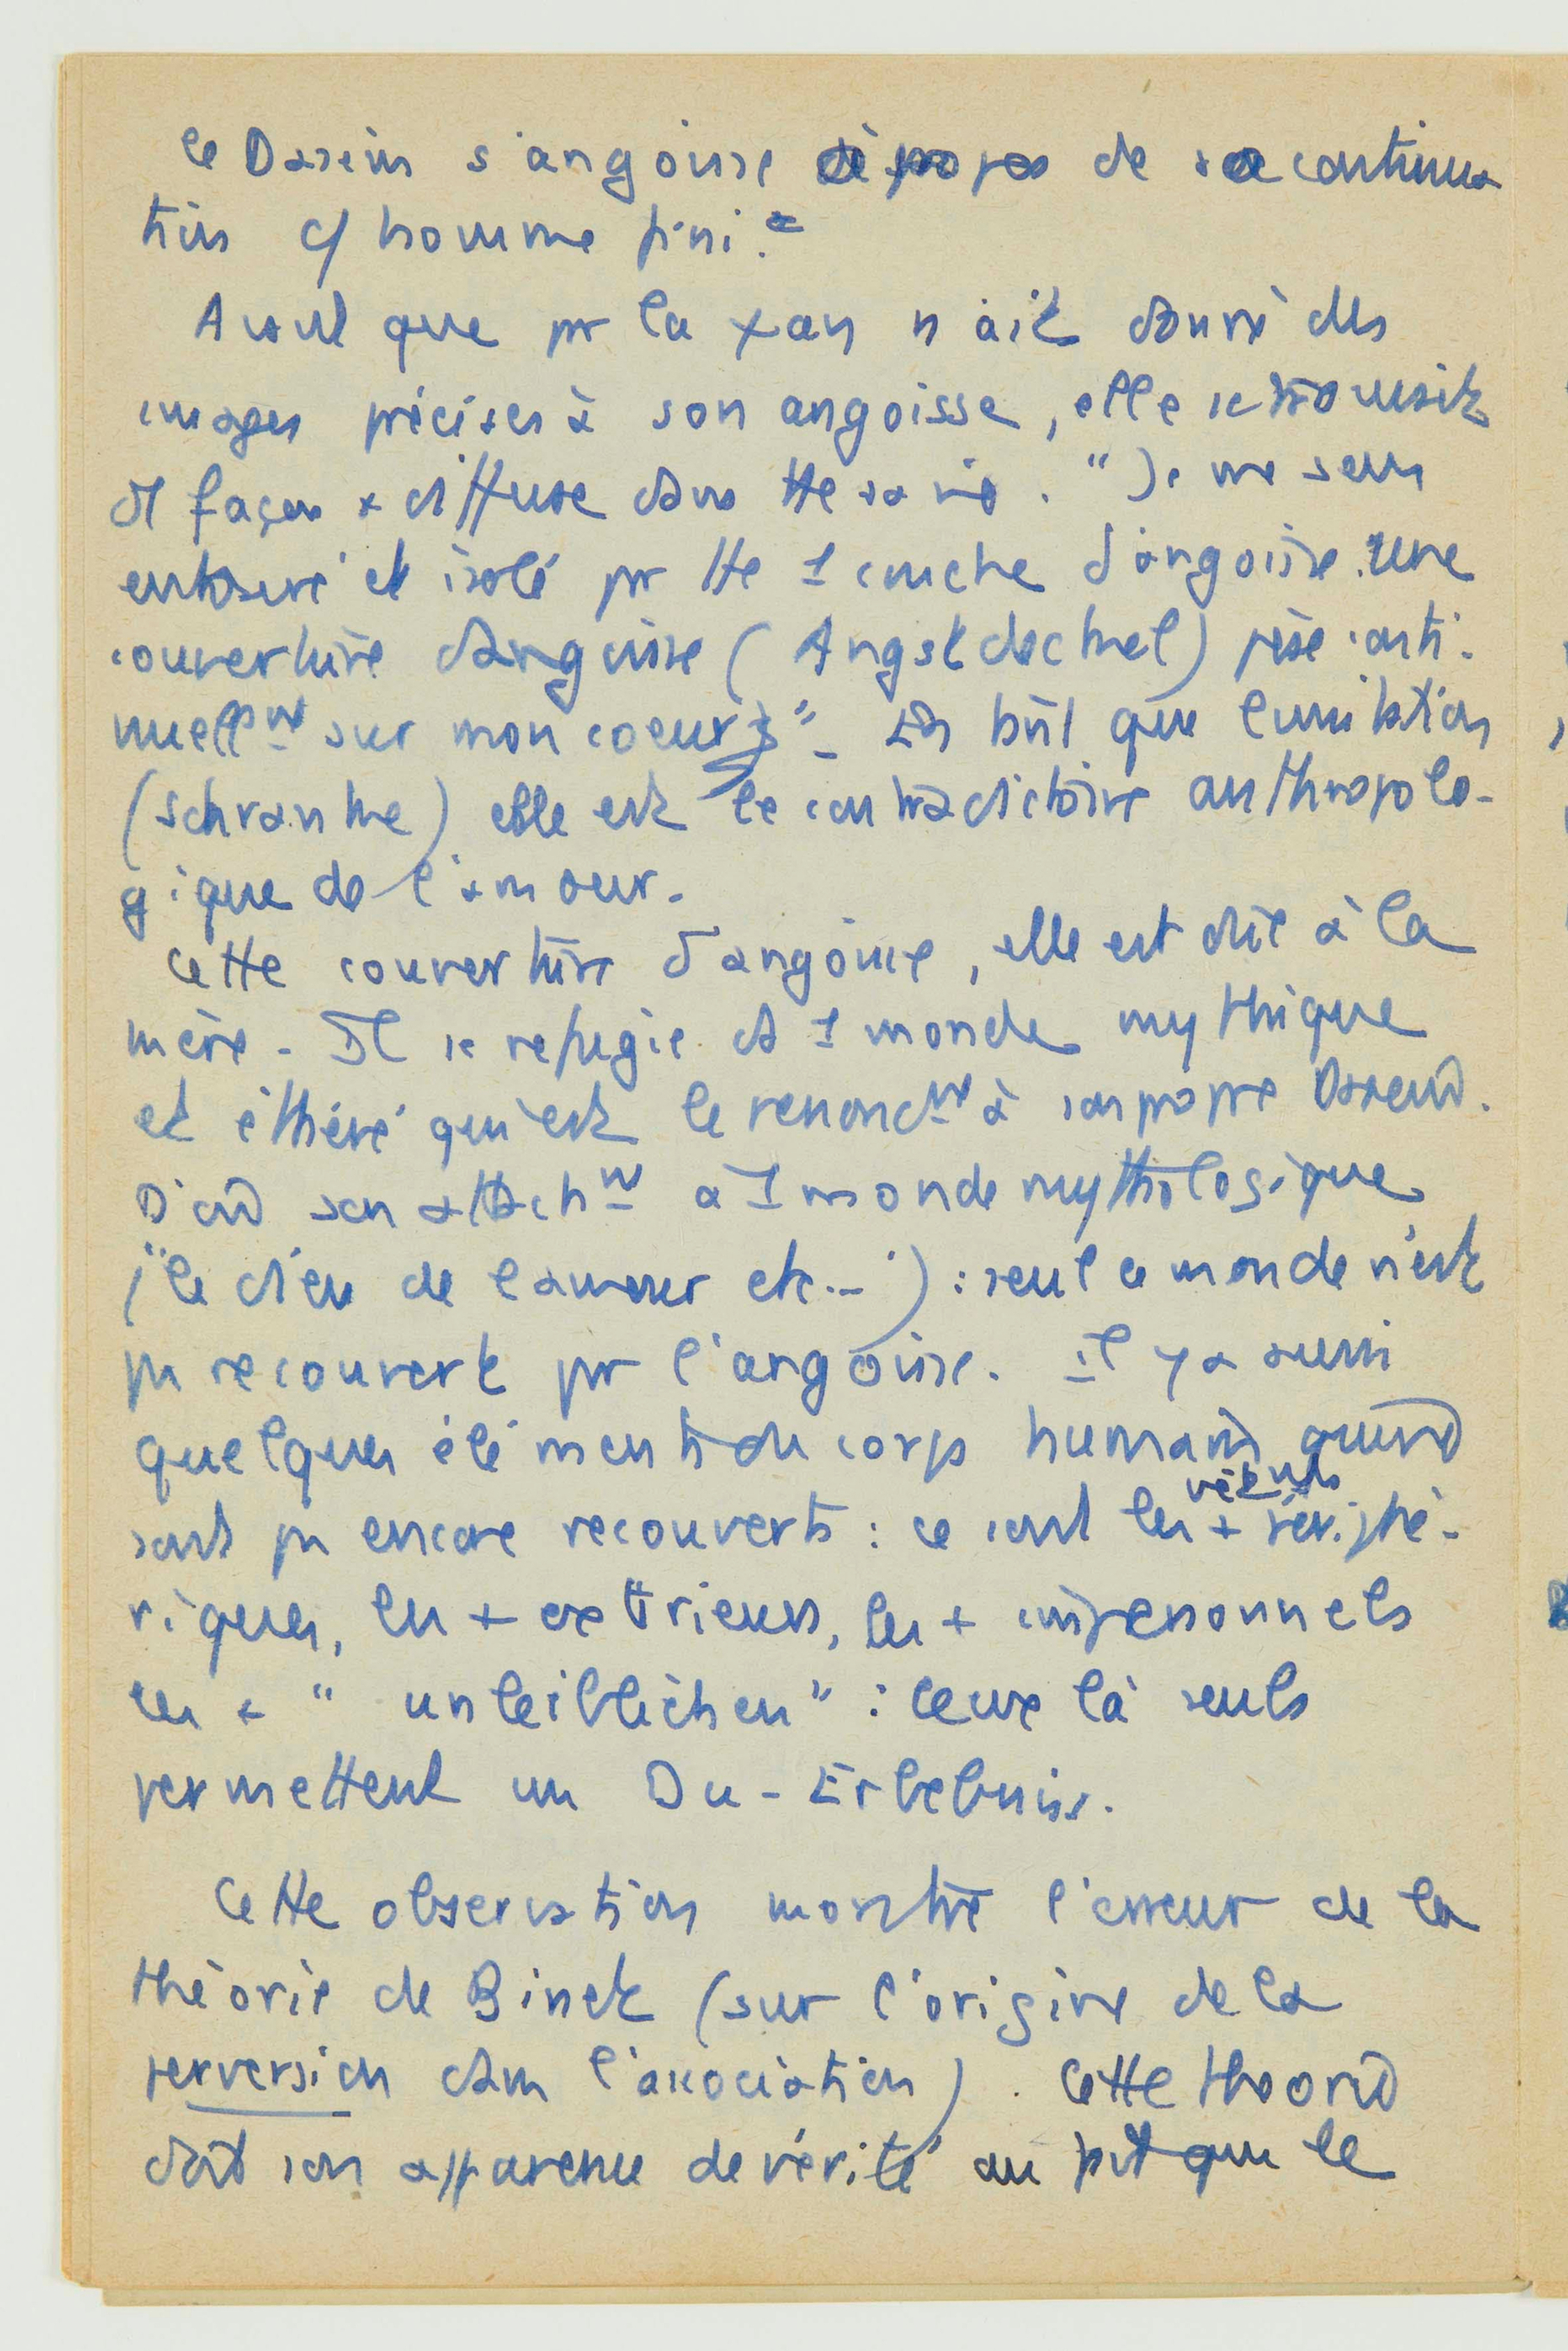 le Dasein s'angoisse à propos de sa continua
tion c/ homme fini.
Avant que pr la xan n'ait donné des
images précises à son angoisse, elle se trouvait
de façon + diffuse dans tte sa vie. "Je me sens
entouré et isolé pr tte 1 couche d'angoisse. une
couverture d'angoisse (Angstdeckel) pèse conti-
nuellemt sur mon coeur" - En tant que limitation
(schranke) elle est le contradictoire anthropolo-
gique de l'amour.
Cette couverture d'angoisse, elle est due à la
mère - Il se refugie ds 1 monde mythique
et éthéré qui est le renoncmt à son propre Dasein.
D'où son attachmt à 1 monde mythologique
("le dieu de l'amour etc.-") : seul ce monde n'est
pas recouvert pr l'angoisse. Il y a aussi
quelques éléments du corps humain qui ne
sont pas encore recouverts : ce sont les + périphé-
riques, les + extérieurs, les + impersonnels
les + "unleiblichen" : ceux là seuls
permettent un Du-Erlebniss.
Cette observation montre l'erreur de la
théorie de Binet (sur l'origine de la
perversion dans l'association). Cette théorie
doit son apparence de vérité au fait que le